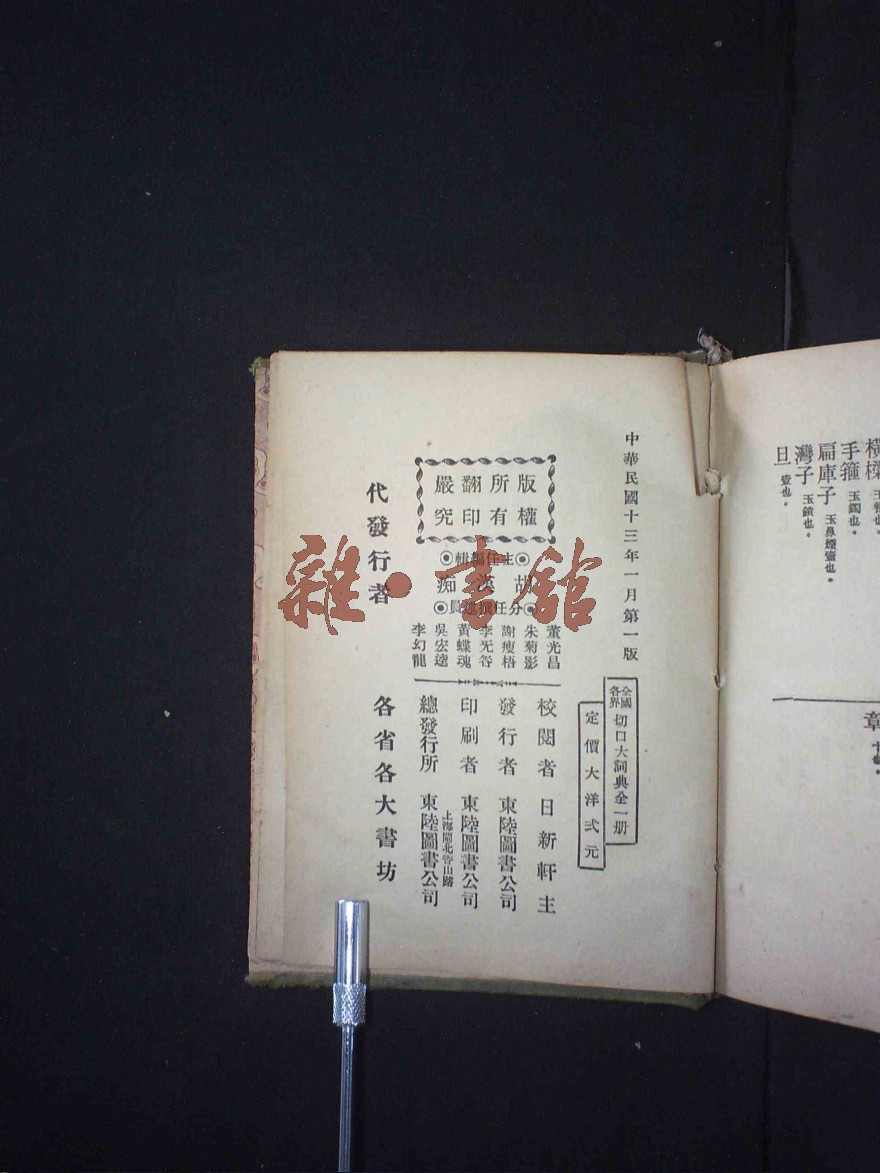 橫樑
手箍 玉鐲也。
扁庫子 玉鼻煙壺也。
灣子 玉鐀也。
旦 壺也。
章
中華民國十三年一月第一版
全國各界 切口大詞典全一册
定價大洋弍元
版權所有
翻印嚴究
◉主任編輯◉
胡漢痴
◉分任撰述員◉
董光昌
朱菊影
謝瘦梧
黃蝶魂
吳宏遠
李幻龍
校閱者 日新軒主
發行者 東陸圖書公司
印刷者 東陸圖書公司
上海閘北寶山路
總發行所 東陸圖書公司
代發行者 各省各大書坊
雜·書館